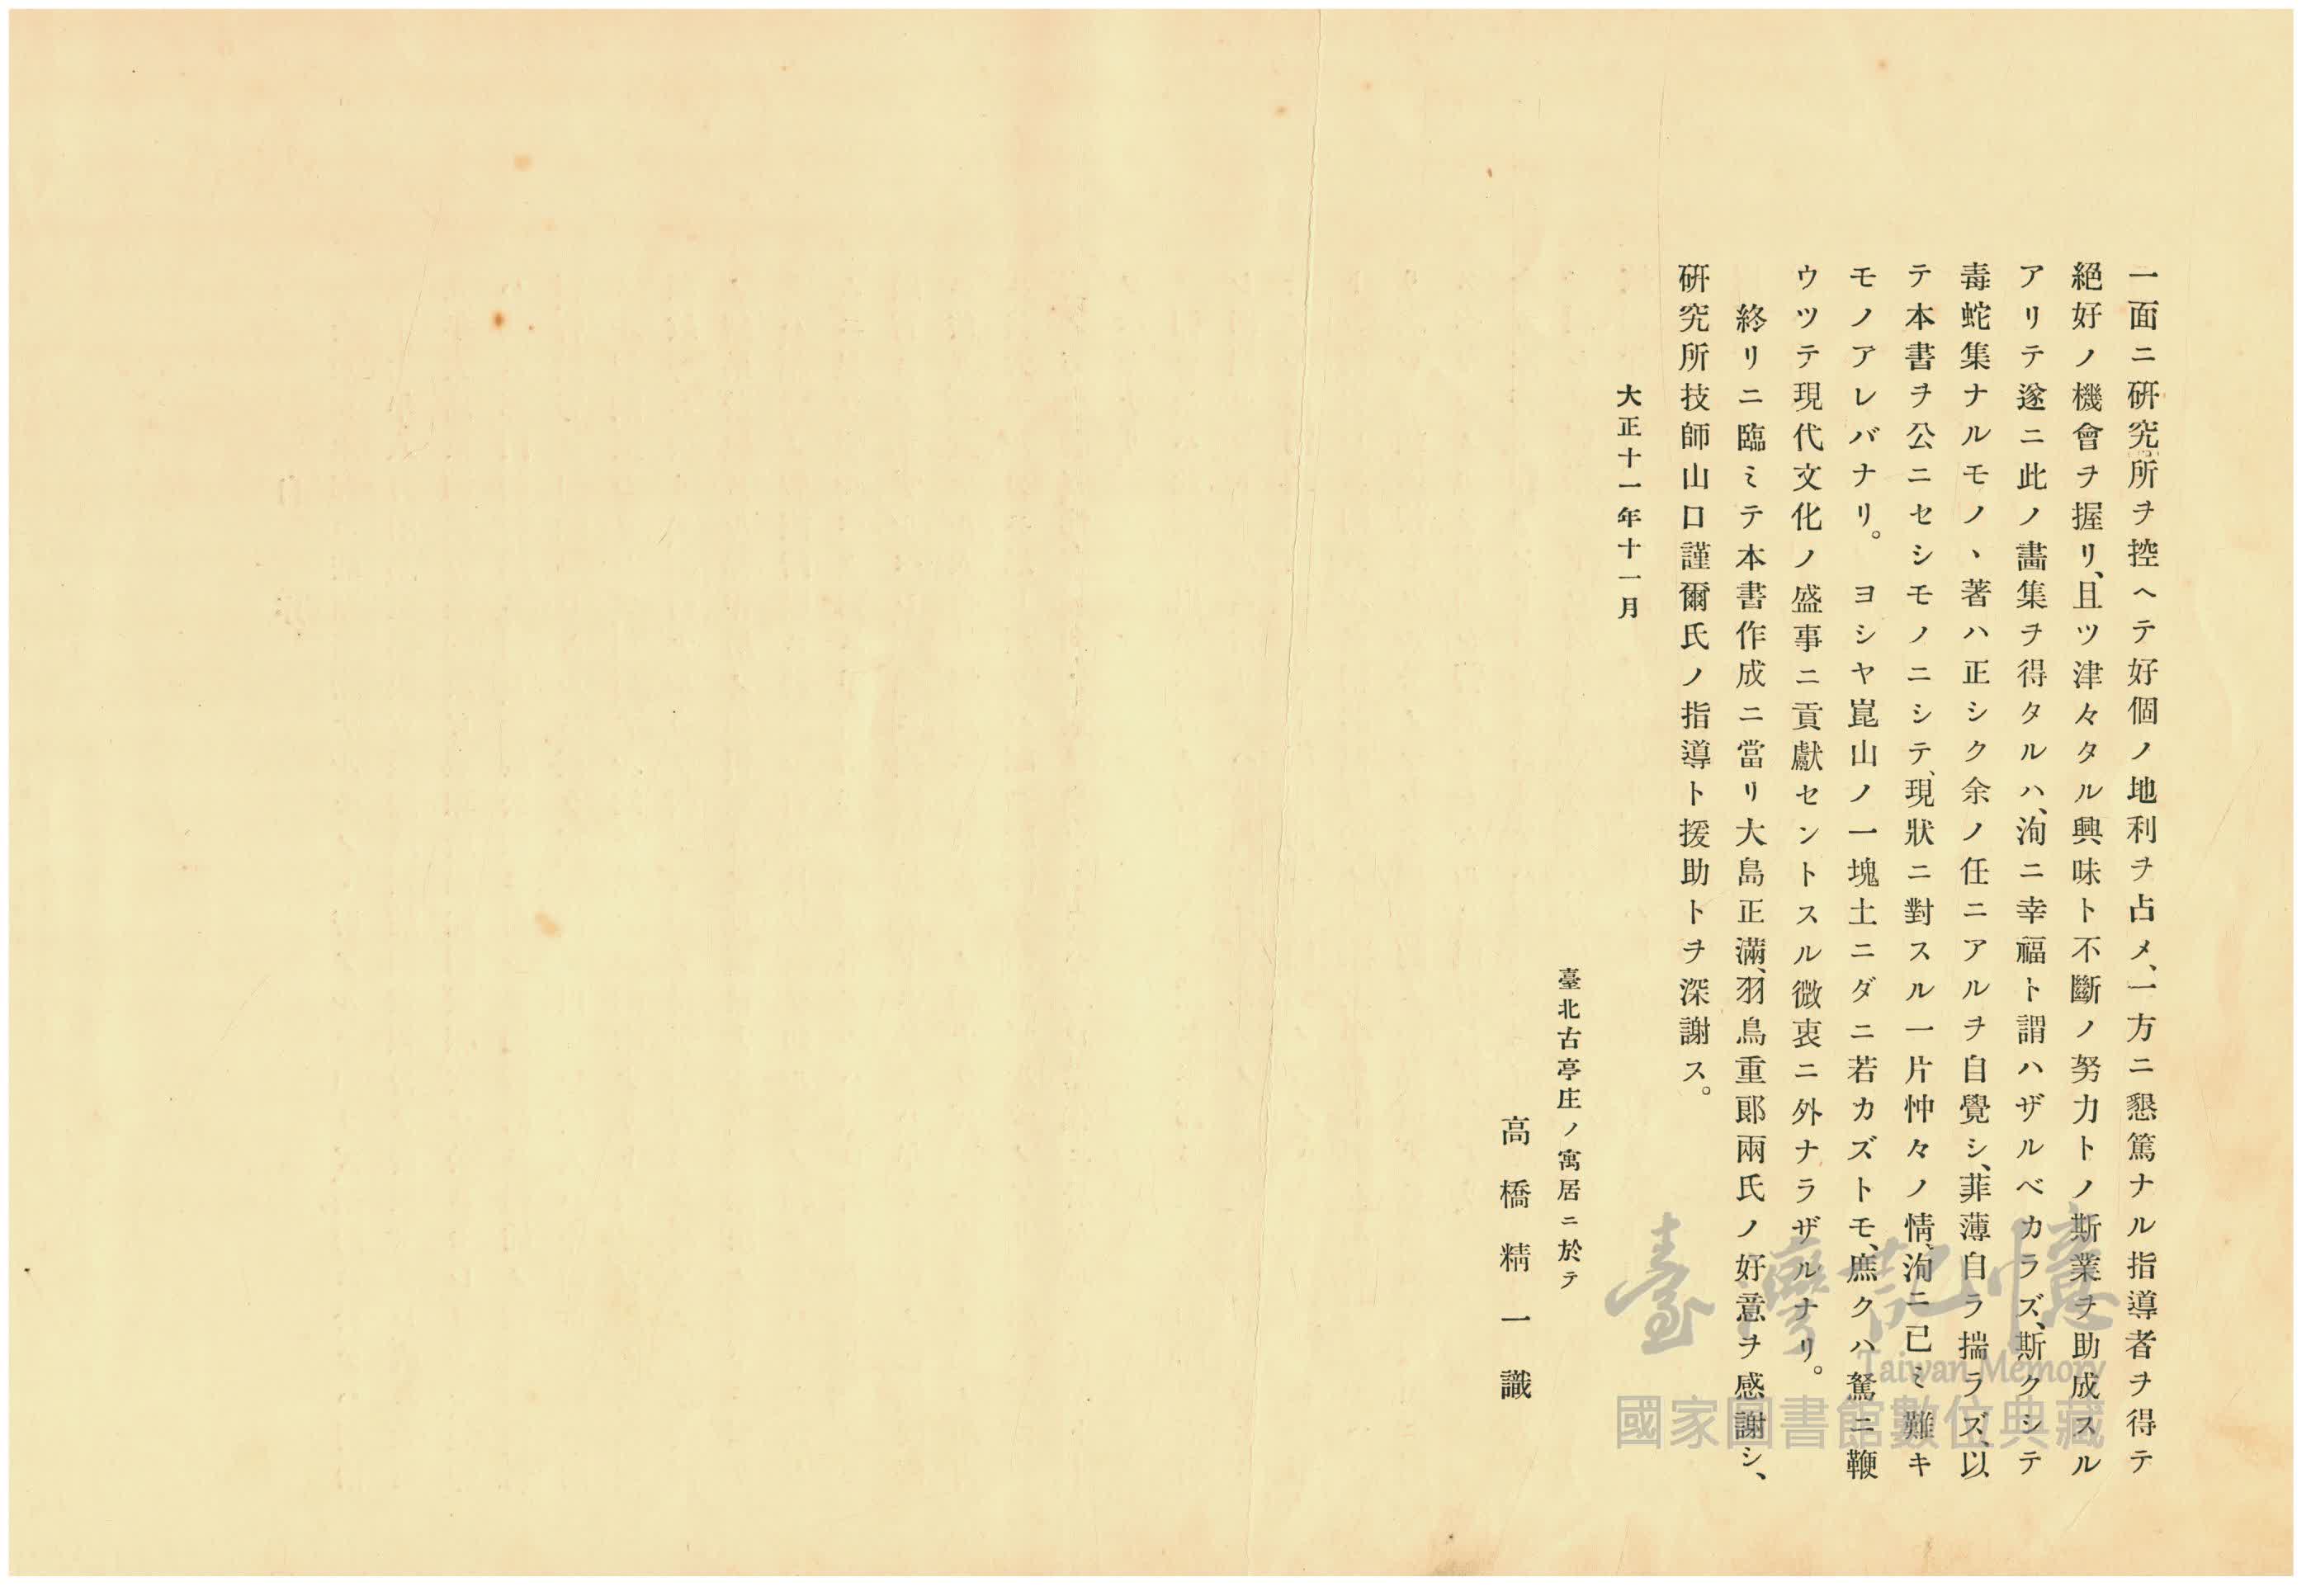 一面ニ硏究所ヲ控ヘテ好個ノ地利ヲ占メ、一方ニ懇篤ナル指導者ヲ得テ
絕好ノ機會ヲ握リ、且ツ津々タル興味ト不斷ノ努力トノ斯業ヲ助成スル
アリテ遂ニ此ノ畵集ヲ得タルハ、洵ニ幸福ト謂ハザルベカラズ、斯クシテ
毒蛇集ナルモノヽ著ハ正シク余ノ任ニアルヲ自覺シ、菲薄自ラ揣ラズ、以
テ本書ヲ公ニセシモノニシテ、現狀ニ對スル一片忡々ノ情、洵ニ已ミ難キ
モノアレバナリ。 ヨシヤ崑山ノ一塊土ニダニ若カズトモ、庶クハ駑ニ鞭
ウツテ現代文化ノ盛事ニ貢獻セントスル微衷ニ外ナラザルナリ。
終リニ臨ミテ本書作成ニ當リ大島正滿、羽鳥重郞兩氏ノ好意ヲ感謝シ、
硏究所技師山口謹爾氏ノ指導ト援助トヲ深謝ス。
大正十一年十一月
臺北古亭庄ノ寓居ニ於テ
高橋精一識
臺灣記憶
Taiwan Memory
國家圖書館數位典藏